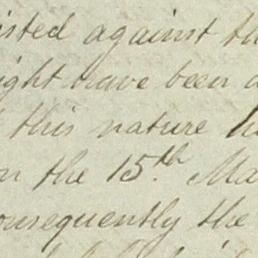 isted against th
ight have been a
this nature h
on the 15th Ma
onsequently the